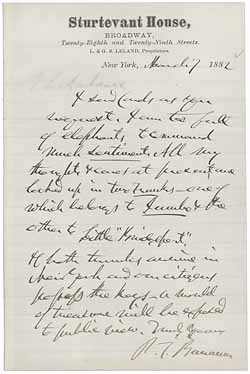 Sturtevant House,
BROADWAY,
Twenty-Eighth and Twenty-Ninth Streets.
L. & G. S. LELAND, Proprietors.
New York, March 7 1882
I send cards as you
request. I am too full
of elephants to command
much sentiment. All my
thoughts & cares at present are
locked up in two trunks - one of
which belongs to Jumbo & the
other to Little "Bridgeport".
If both trunks arrive in
New York and our citizens
possess the keys a world
of treasure will be exposed
to public view. Truly Yours
P. T. Barnum